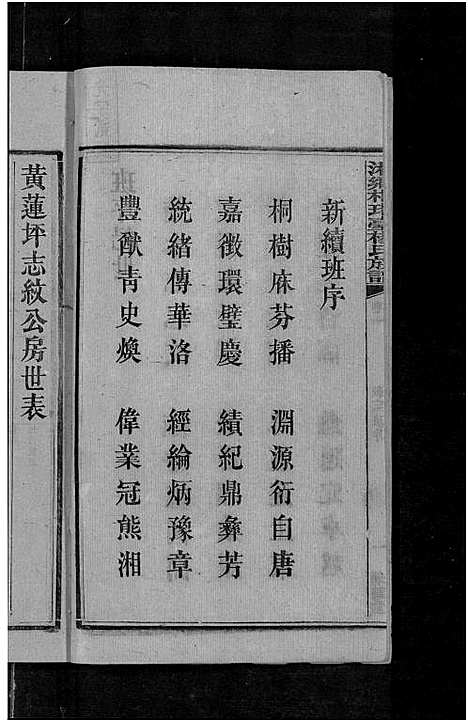 新續班序
桐樹麻芬播　淵源衍自唐
嘉徵環璧慶　績紀鼎彝芳
統緒傳華洛　經綸炳豫章
豐猷青史煥　偉業冠熊湘
黃蓮坪志紋公房世表